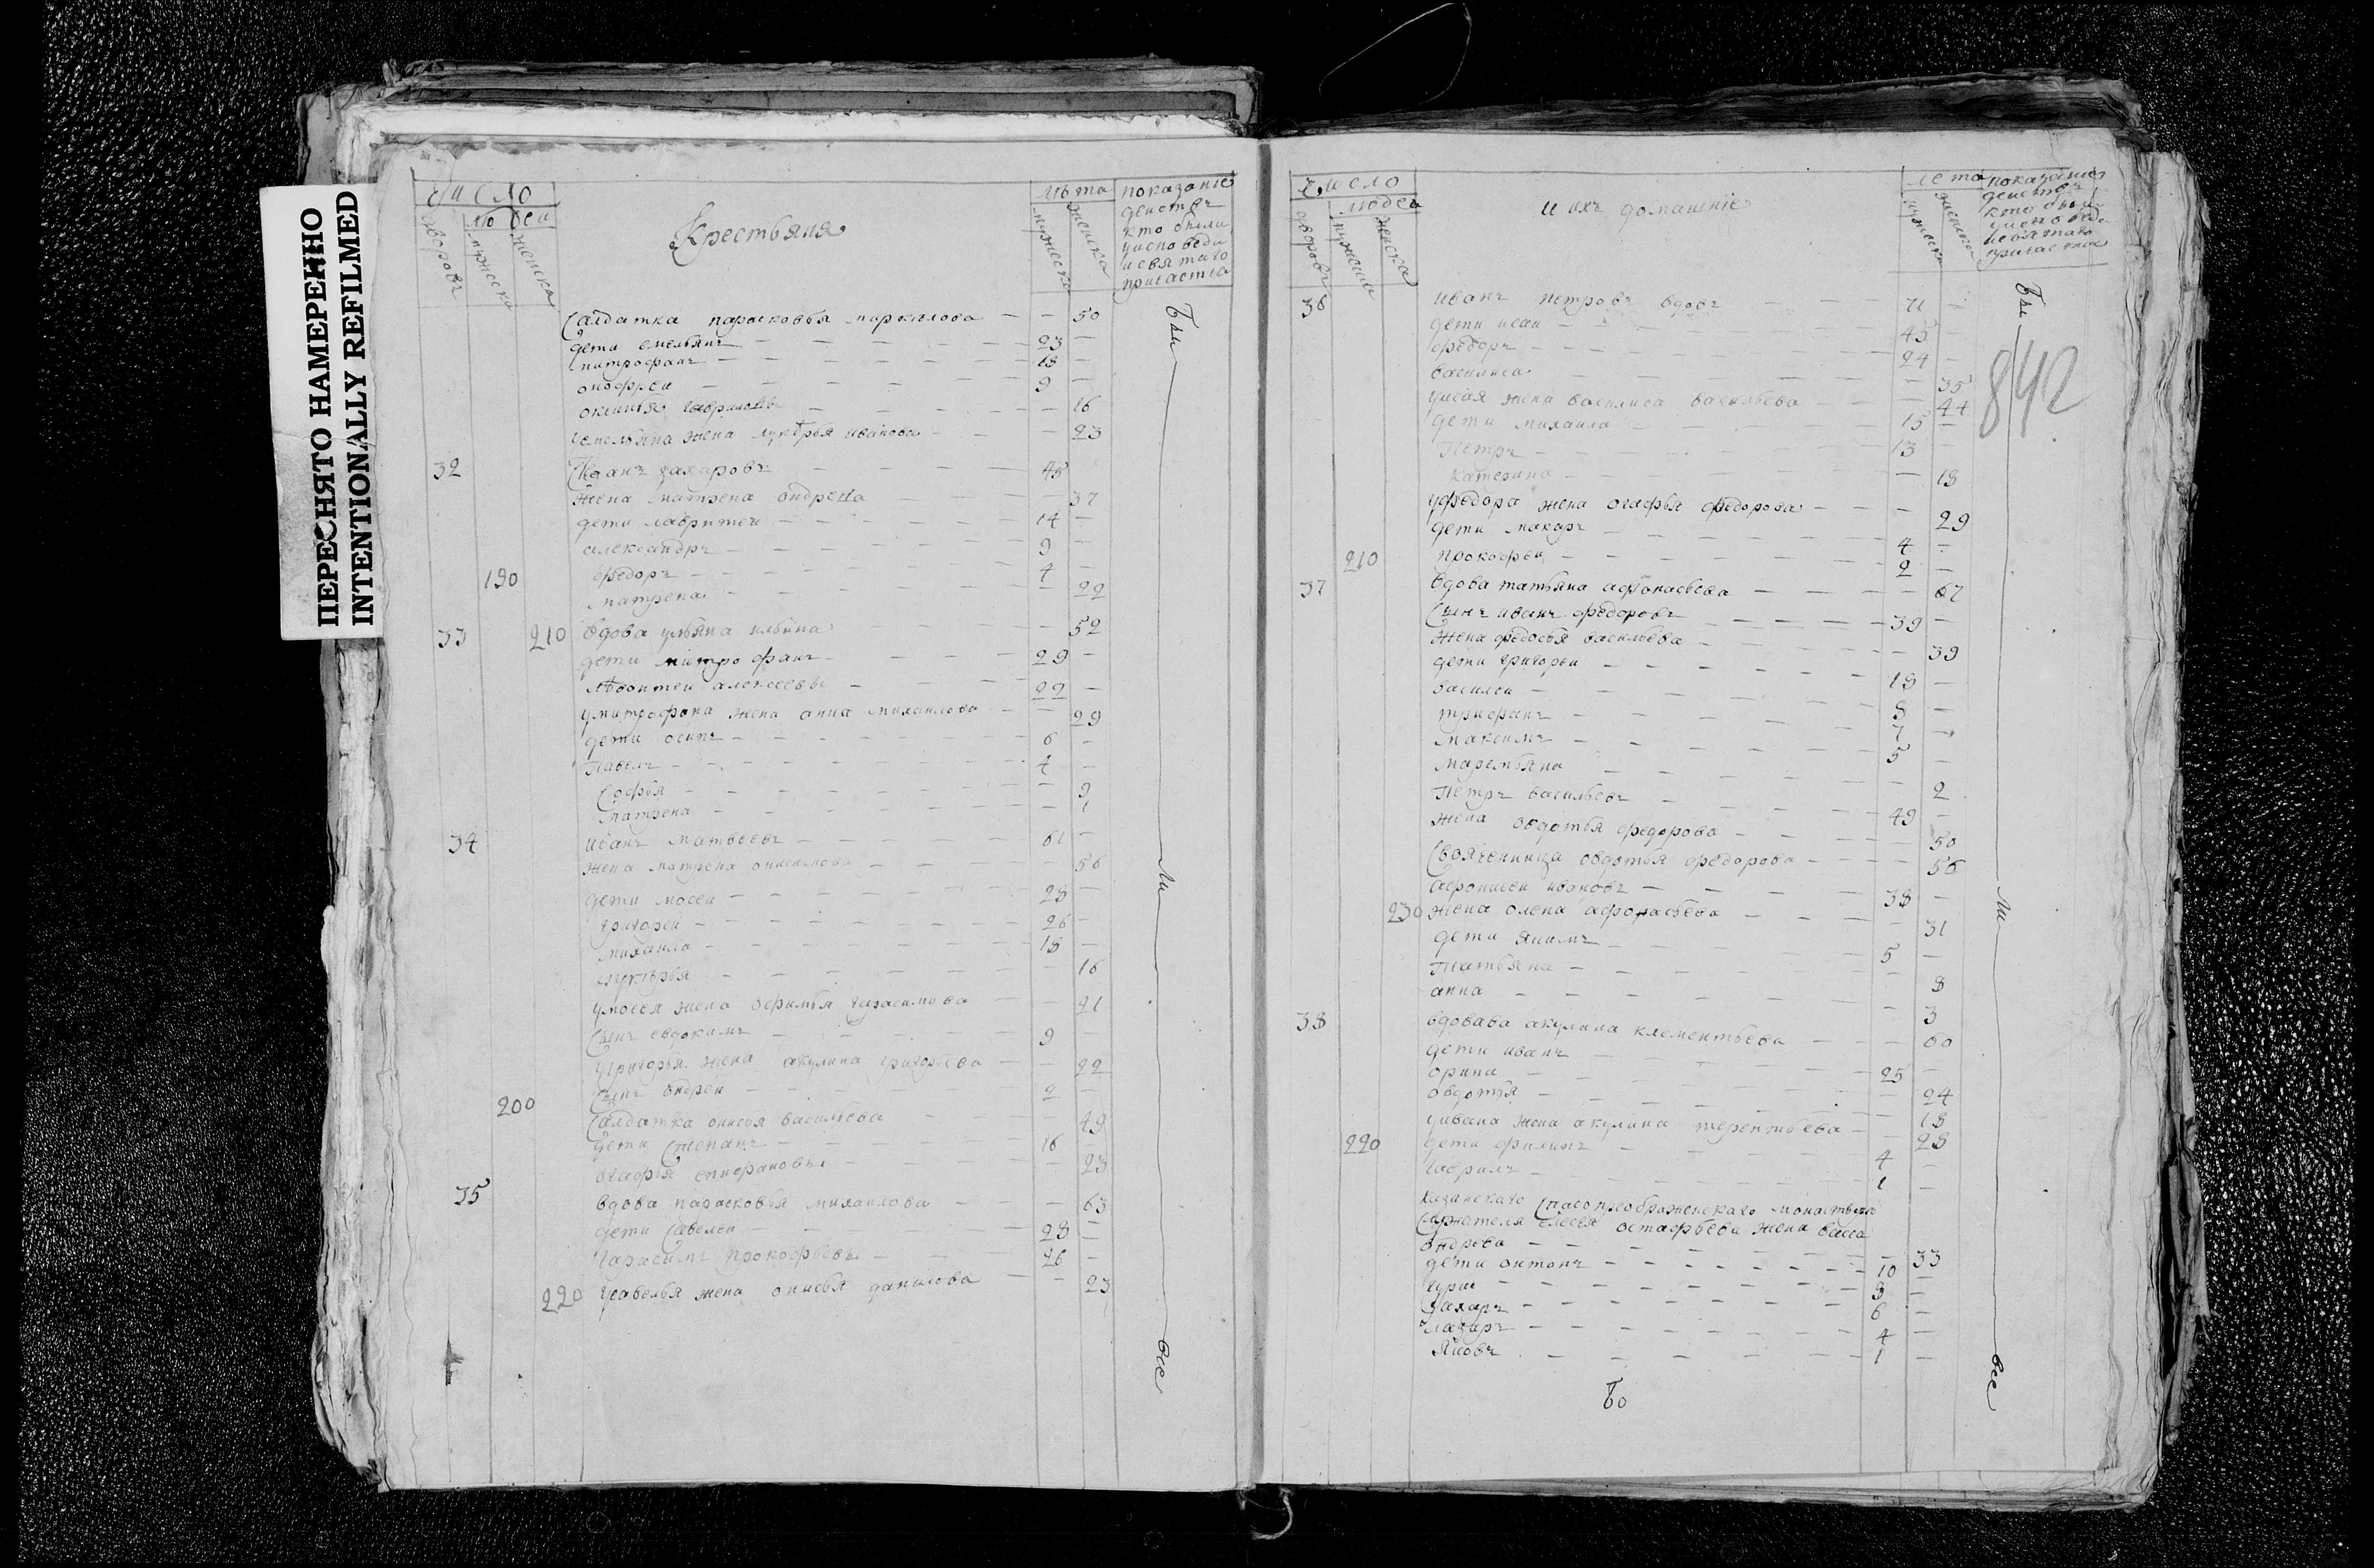 ПЕРЕСНЯТО НАМЕРЕННО
INTENTIONALLY REFILMED
число
дворовъ
людеи
мужеска
женска
Крестьяня
лѣта
мужеска
женска
показание
действъ
кто были
уисповеди
и святаго
причастиа
Салдатка парасковья миркулова — — 50
дети емельянъ — 23 —
митрофанъ — 18 —
оноффреи — 9 —
оксинья — — 16
уемельяна жена лукерья иванова — — 23
32 Иванъ захаровъ — 45
жена матрена ондреева — 37
дети лаврентеи — 14 —
александръ — 9 —
190 федоръ — 4 —
матрена — — 22
33 210 вдова ульяна ильина — — 52
дети митрофанъ — 29 —
леонтеи алексеевы — 22 —
умитрофана жена анна михаилова — — 29
дети осипъ — 6 —
Павелъ — 4 —
Софья — — 9
матрена — — 1
34 иванъ матвеевъ — 61 —
жена матрена онисимова — — 56
дети мосеи — 28 —
григореи — 26 —
михаила — 18 —
лукерья — — 16
умосея жена офимья герасимова — — 21
Сынъ евдокимъ — 9 —
Угригорья жена акулина григорьева — — 22
200 Сынъ ондреи — 2 —
Салдатка онисья васильева — 49
дети Степанъ — 16
огафья степановы — — 23
35 вдова парасковья михаилова — — 63
дети Савелеи — 28 —
Гарасимъ прокофьевы — 26 —
220 Усавелья жена онисья данилова — — 23
Бы
ли
все
число
дворовъ
людеи
мужеска
женска
и ихъ домашние
лета
мужеска
женска
показание
действъ
кто были
уисповеди
исвятаго
причастиа
842
36 иванъ петровъ вдовъ — 71 —
дети исаи — 45 —
федоръ — 24 —
василиса — — 35
уисая жена василиса васильева — 44
дети михаила — 15 —
Петръ — 13 —
катерина — — 18
уфедора жена огафья федорова — — 29
дети макаръ — 4 —
210 прокофеи — 2 —
37 вдова татьяна афонасьева — — 67
Сынъ иванъ федоровъ — 39 —
жена федосья васильева — — 39
дети григореи — 18 —
василеи — 8 —
трифанъ — 7 —
максимъ — 5 —
маремьяна — — 2
Петръ васильевъ — 49 —
жена овдотья федорова — 50
Своячениица овдотья федорова — 56
афонасеи ивановъ — 38 —
230 жена олена афонасьева — — 31
дети якимъ — 5 —
Татьяна — — 8
анна — — 3
38 вдовава акулина клементьева — — 60
дети иванъ — 25 —
орина — — 24
овдотья — — 18
уивана жена акулина терентьева — — 28
220 дети филипъ — 4 —
Гаврилъ — 1 —
казанскаго Спасопреображенскаго монастыря
Служителя елесея остафьева жена васса
ондреева — — 33
дети онтонъ — 10 —
гури — 8 —
Захаръ — 6 —
лазаръ — 4 —
Яковъ — 1 —
Бы
ли
все